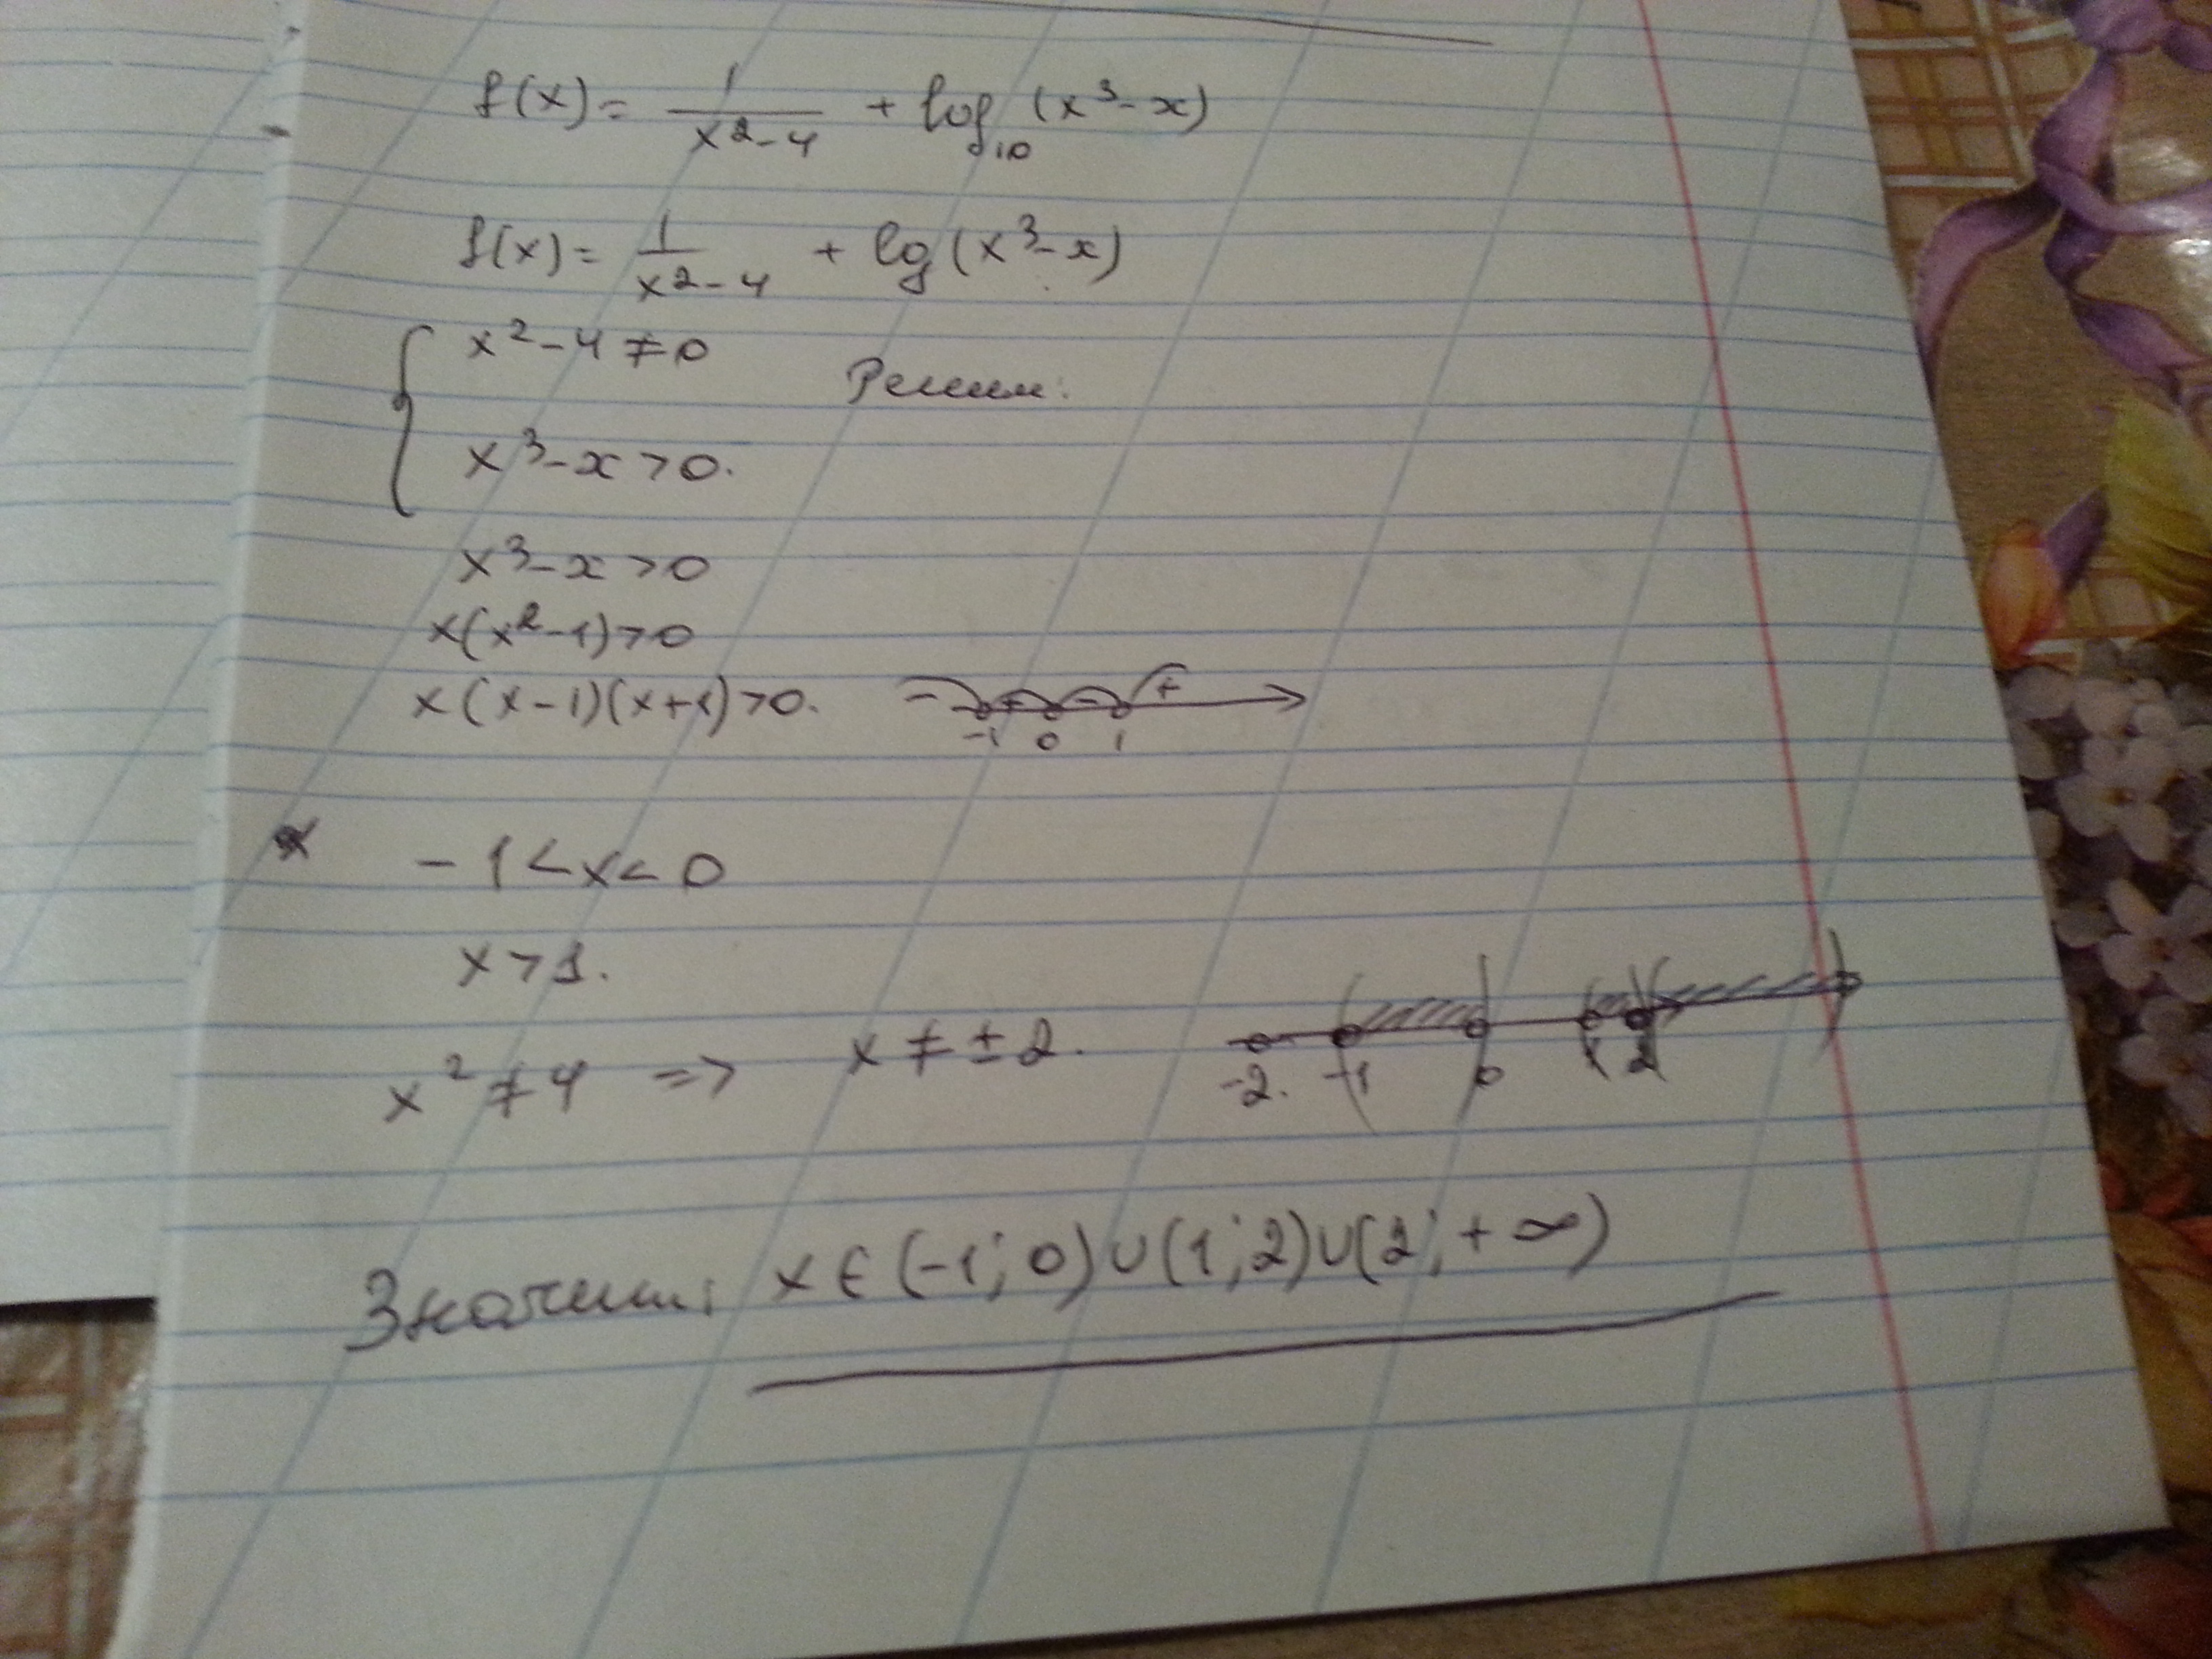 f(x) = 1/(x² - 4) + log₁₀(x³ - x)
f(x) = 1/(x² - 4) + lg(x³ - x)
{ x² - 4 ≠ 0
Решим:
x³ - x > 0.
x³ - x > 0
x(x² - 1) > 0
x(x - 1)(x + 1) > 0. - + - +
-1 0 1
-1 < x < 0
x > 1.
x² ≠ 4 => x ≠ ± 2.
-2. -1 0 1 2
Значит: x ∈ (-1; 0) ∪ (1; 2) ∪ (2; + ∞)